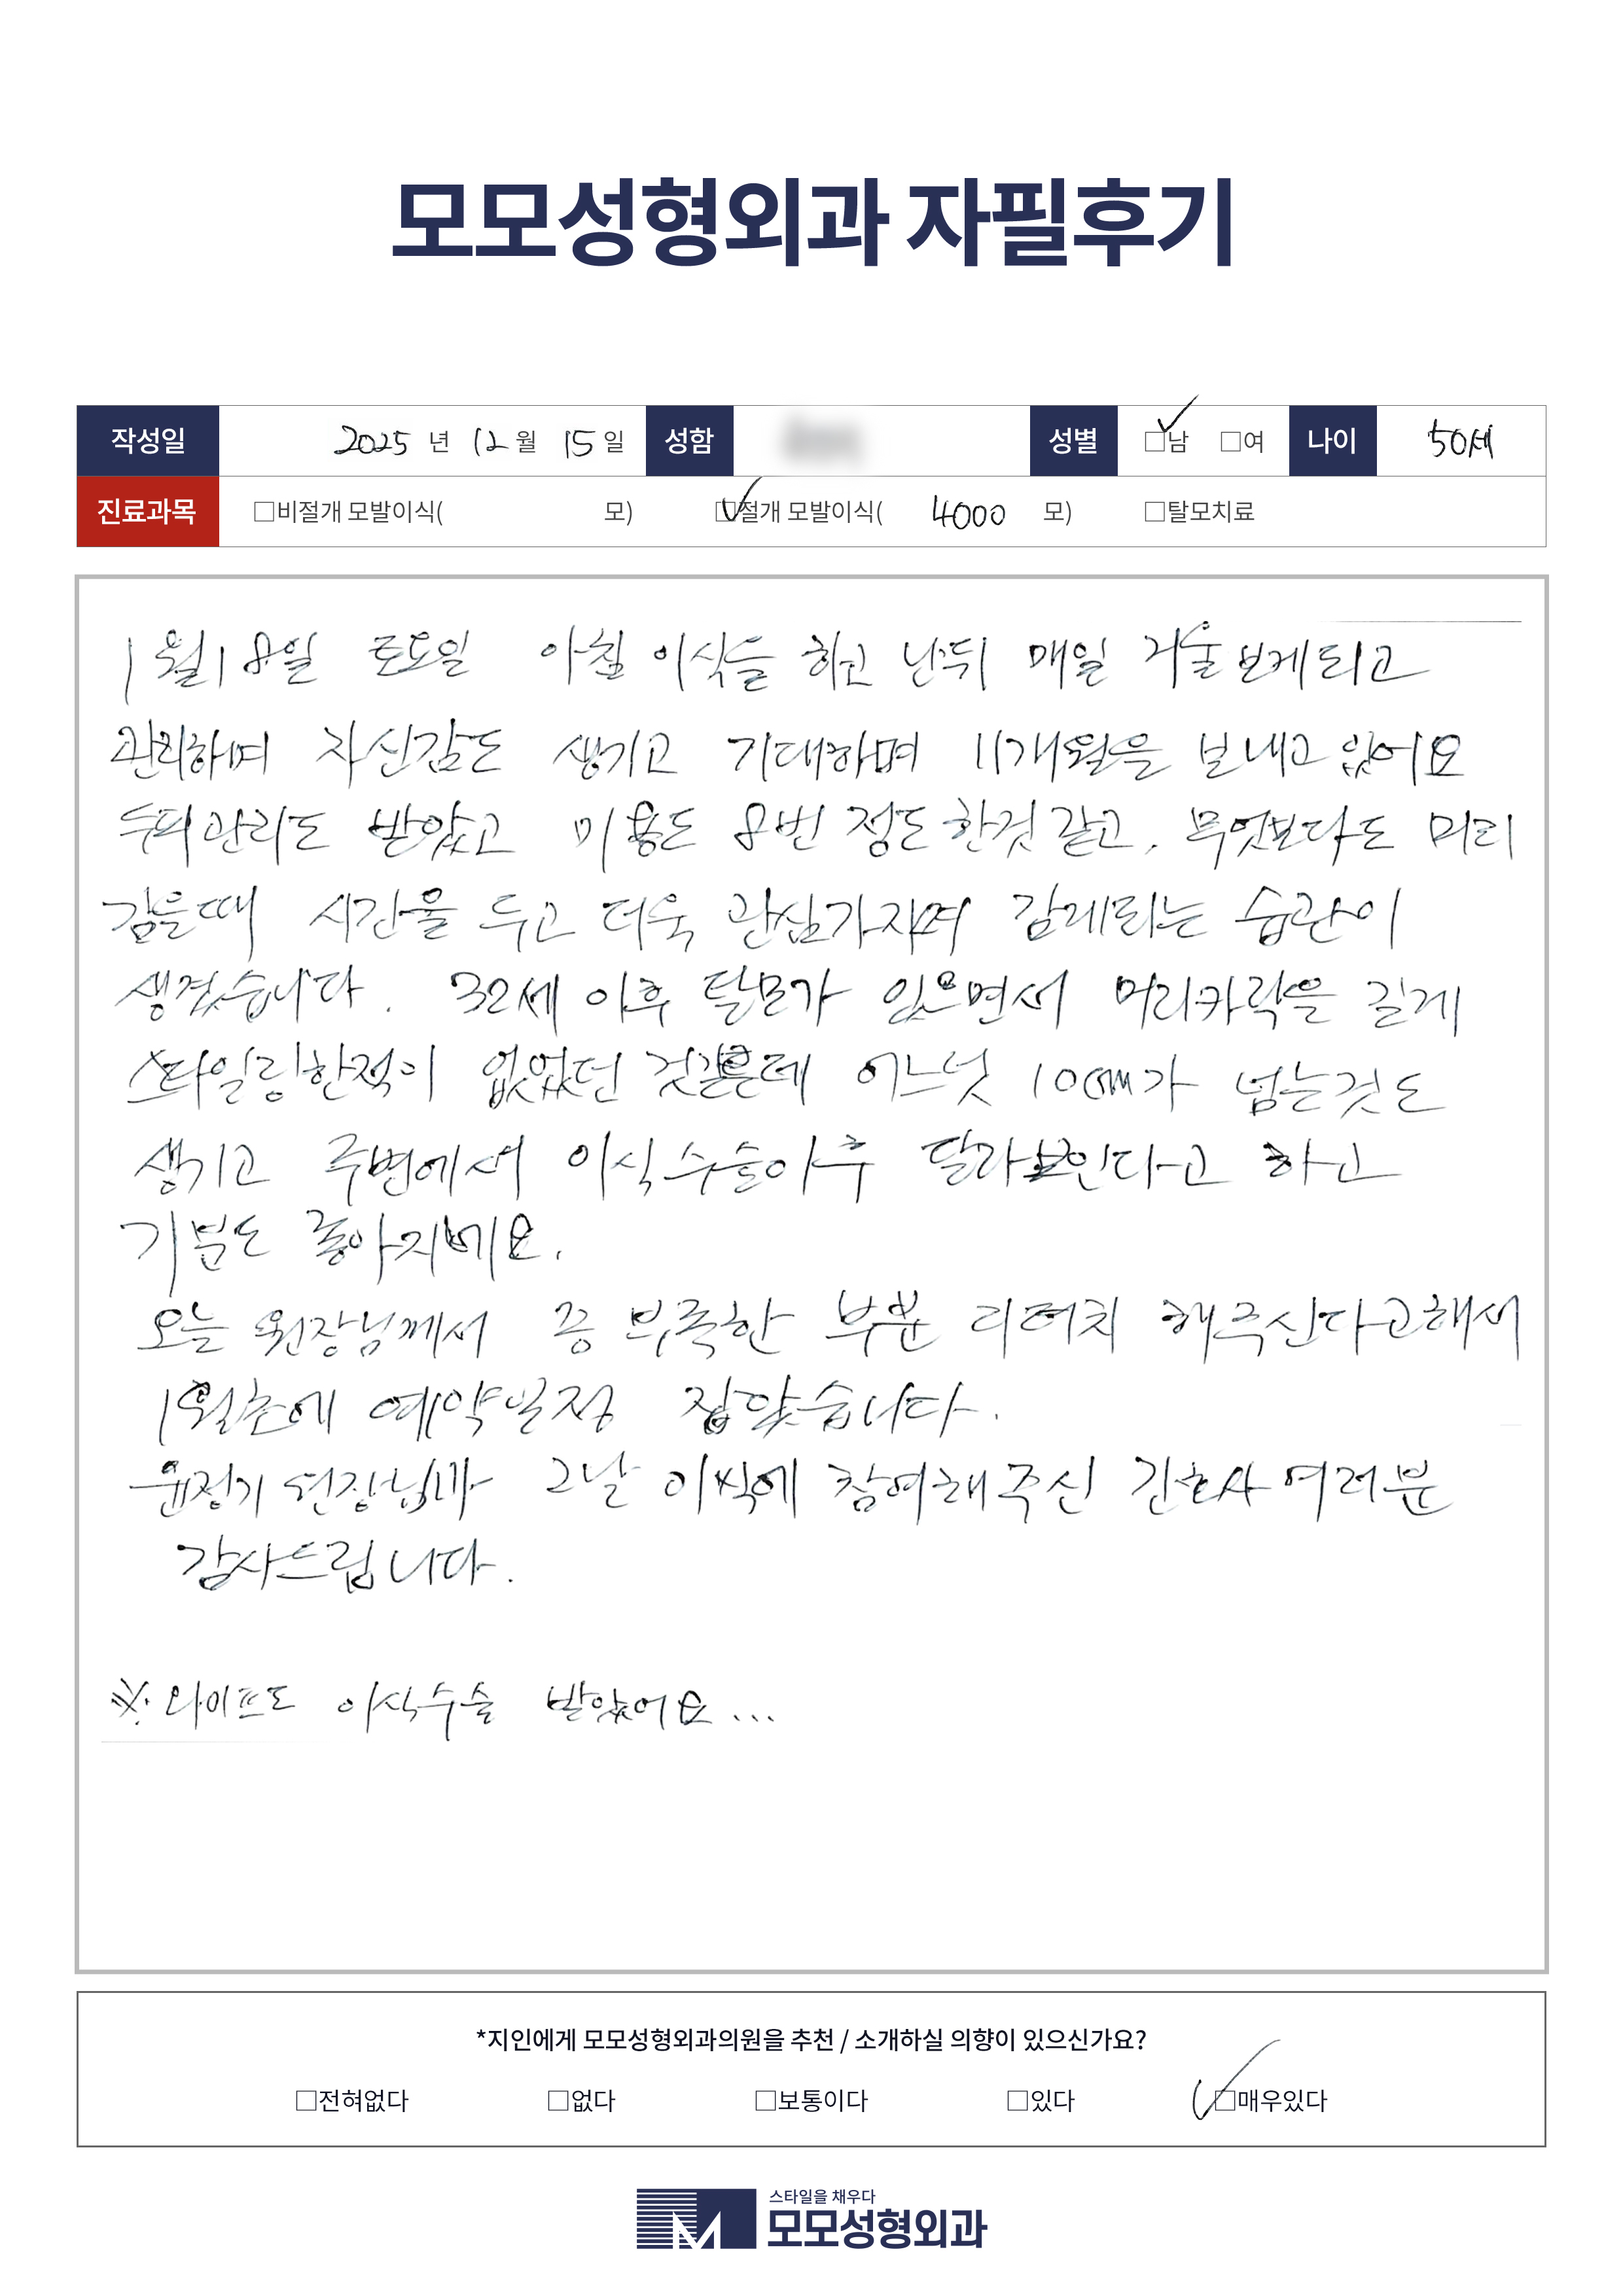 모모성형외과 자필후기
작성일 2025 년 12 월 15 일 성함 성별 ☑남 □여 나이 50세
진료과목 □비절개 모발이식( 모) ☑절개 모발이식( 4000 모) □탈모치료
1월18일 토요일 아침 이식을 하고 난뒤 매일 거울보게되고
관리하며 자신감도 생기고 기대하며 11개월을 보내고 있어요
두피관리도 받았고 미용도 8번 정도 한것 같고, 무엇보다도 머리
감을때 시간을 두고 더욱 관심가지며 감게되는 습관이
생겼습니다. 32세 이후 탈모가 있으면서 머리카락을 길게
스타일링한적이 없었던 것같은데 어느덧 10cm가 넘는것도
생기고 주변에서 이식수술이후 달라보인다고 하고
기분도 좋아지네요.
오늘 원장님께서 좀 부족한 부분 리터치 해주신다고해서
1월초에 예약일정 잡았습니다.
윤정기 원장님과 그날 이식에 참여해주신 간호사 여러분
감사드립니다.
※ 와이프도 이식수술 받았어요...
*지인에게 모모성형외과의원을 추천 / 소개하실 의향이 있으신가요?
□전혀없다 □없다 □보통이다 □있다 ☑매우있다
스타일을 채우다
모모성형외과